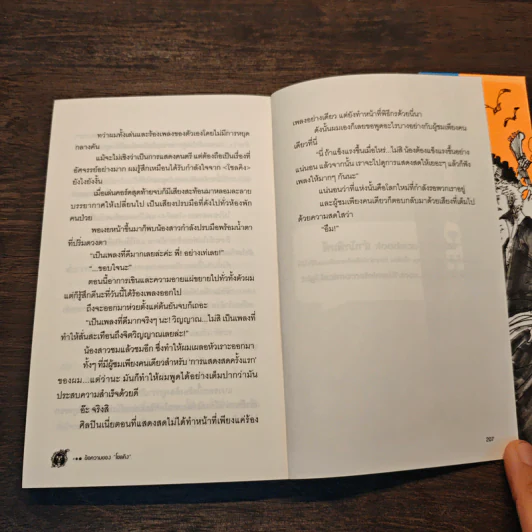 ทว่าผมทั้งเล่นและร้องเพลงของตัวเองโดยไม่มีการหยุด
กลางคัน
แม้จะไม่เชิงว่าเป็นการแสดงดนตรี แต่ต้องถือเป็นเรื่องที่
อัศจรรย์อย่างมาก ผมรู้สึกเหมือนได้รับกำลังใจจาก
ยังไงยังงั้น
เมื่อเล่นคอร์ดสุดท้ายจบก็มีเสียงสะท้อนมาหลอมละลาย
บรรยากาศให้เปลี่ยนไป เป็นเสียงปรบมือที่ดังไปทั่วห้องพัก
คนป่วย
พอเงยหน้าขึ้นมาก็พบน้องสาวกำลังปรบมือพร้อมน้ำตา
ที่ปริ่มดวงตา
"เป็นเพลงที่ดีมากเลยล่ะค่ะ พี่! อย่างเท่เลย!"
"...ขอบใจนะ"
ตอนนี้อาการเขินและความอายแผ่ขยายไปทั่วทั้งตัวผม
แต่ก็รู้สึกดีนะที่วันนี้ได้ร้องเพลงออกไป
ถึงจะออกมาห่วยตั้งแต่ต้นยันจบก็เถอะ
"เป็นเพลงที่ดีมากจริงๆ นะ! วิญญาณ...ไม่สิ เป็นเพลงที่
ทำให้สั่นสะเทือนถึงจิตวิญญาณเลยล่ะ!"
น้องสาวชมแล้วชมอีก ซึ่งทำให้ผมเผลอหัวเราะออกมา
ทั้งๆ ที่มีผู้ชมเพียงคนเดียวสำหรับ 'การแสดงสดครั้งแรก'
ของผม...แต่ว่านะ มันก็ทำให้ผมพูดได้อย่างเต็มปากว่ามัน
ประสบความสำเร็จด้วยดี
อ๊ะ จริงสิ
ศิลปินเนี่ยตอนที่แสดงสดไม่ได้ทำหน้าที่เพียงแค่ร้อง
ข้อความของ
เพลงอย่างเดียว แต่ยังทำหน้าที่พิธีกรด้วยนี่นา
ดังนั้นผมเองก็เลยขอพูดอะไรบางอย่างกับผู้ชมเพียงคน
เดียวที่นี่
"นี่ ถ้าแข็งแรงขึ้นเมื่อไหร่...ไม่สิ น้องต้องแข็งแรงขึ้น
แน่นอน แล้วจากนั้น เราจะไปดูการแสดงสดให้เยอะๆ แล้วก็ฟัง
เพลงให้มากๆ กันนะ"
แน่นอนว่าที่แห่งนั้นคือโลกใหม่ที่กำลังรอพวกเราอยู่
และผู้ชมเพียงคนเดียวก็ตอบกลับมาด้วยเสียงที่เต็มไป
ด้วยความสดใสว่า
"อืม!"
207